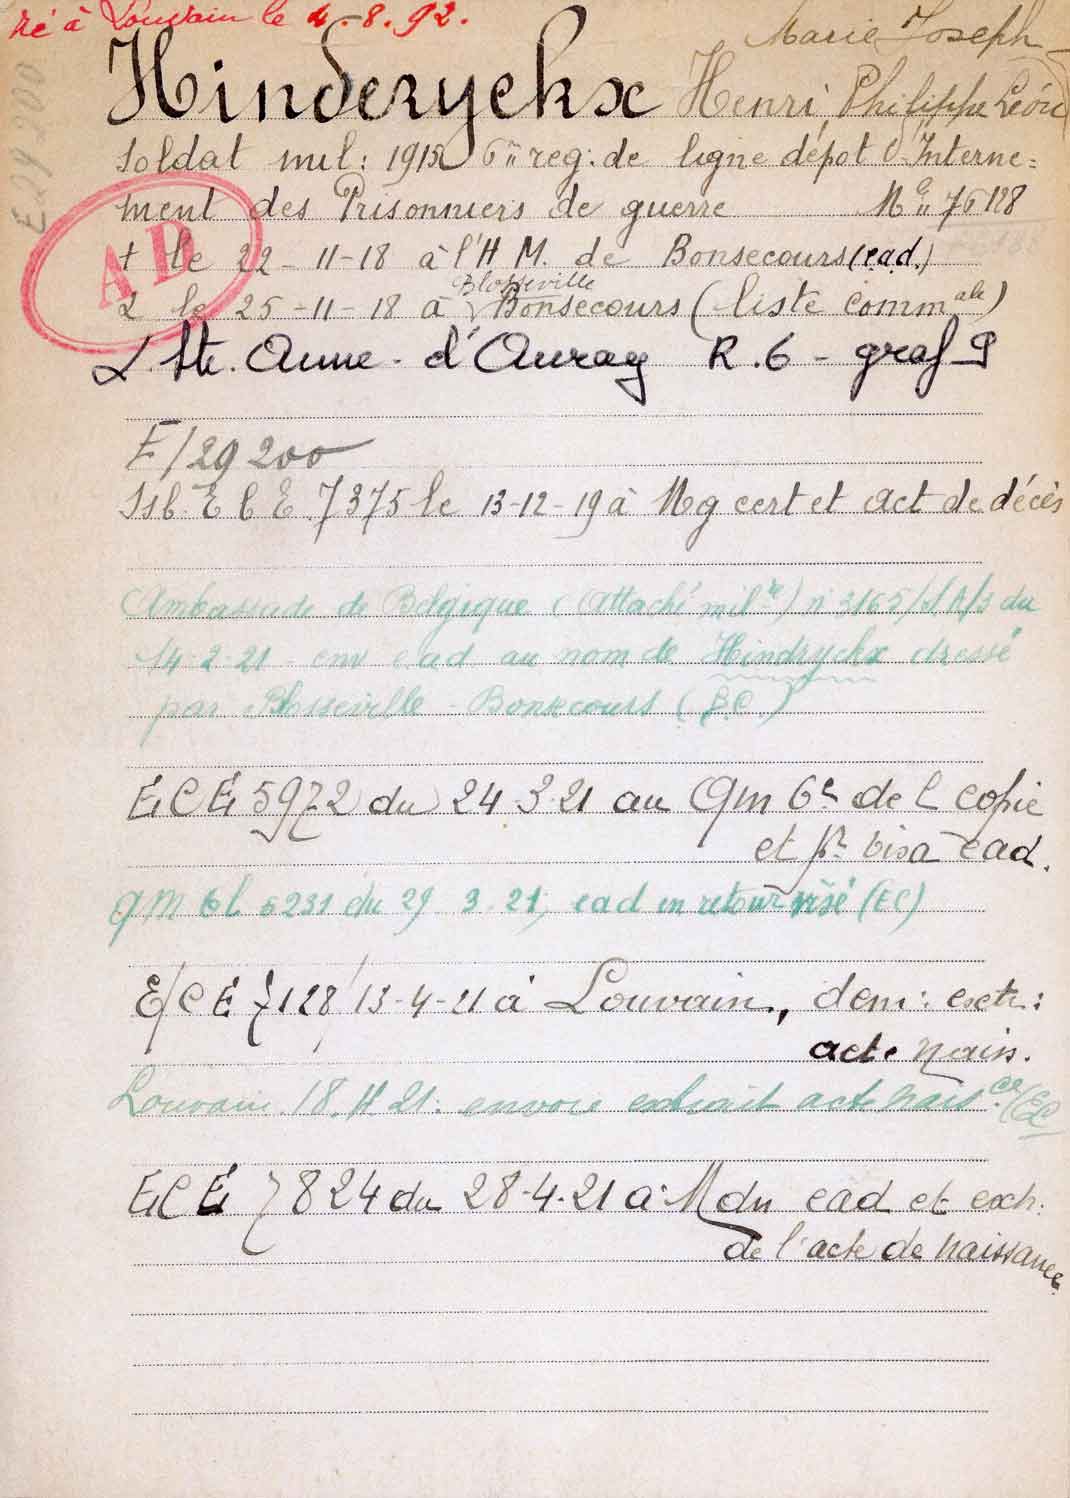 né à Louvain le 4.8.92.
Marie Joseph
Hinderyckx Henri Philippe Léon
E 29 200
soldat mil: 1912 6e reg: de ligne dépot d'Interne=
ment des Prisonniers de guerre Me 76128
AD
† le 22-11-18 à l'H M. de Bonsecours (ead.)
Blosseville
I le 25-11-18 à Bonsecours (liste commale)
I Ste. Anne-d'Auray R.6 - graf 9
E/29200
E C E 7375 le 13-12-19 à Mg cert et act de décès
Ambassade de Belgique (Attaché milre) n 3165/ du
14-2-21 - env ead au nom de Hindryckx dressé
par Blosseville-Bonsecours (E.C.)
E C E 5972 du 24.3.21 au QM 6e de L copie
et pr visa ead.
QM 6L 5231 du 29.3.21, ead en retour visé (EC)
E/C E 7128/13-4-21 à Louvain, dem: extr:
acte nais.
Louvain 18.4.21: envoie extrait acte naisce (EC)
E C E 7824 du 28-4-21 à M du ead et extr.
de l'acte de naissance